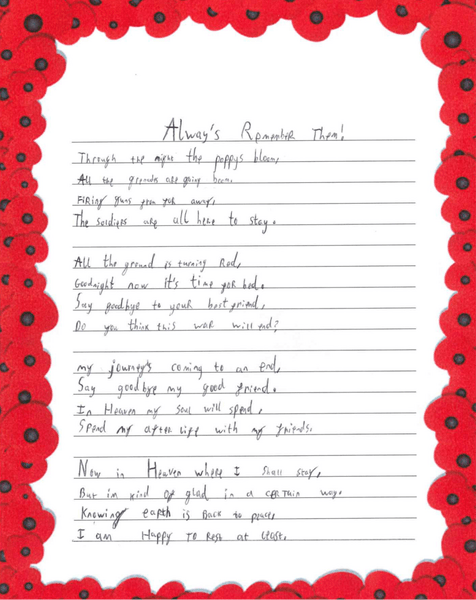 Alway's Remember Them!
Through the night the poppys bloom,
All the grenades are going boom.
Firing guns from far away,
The soldiers are all here to stay.
All the ground is turning Red,
Goodnight now it's time for bed.
Say goodbye to your best friend,
Do you think this war will end?
my journey's coming to an end,
Say goodbye my good friend.
In Heaven my soul will spend,
Spend my after life with my friends.
Now in Heaven where I shall stay,
But im kind of glad in a certain way.
Knowing earth is Back to place,
I am Happy To Rest at least.